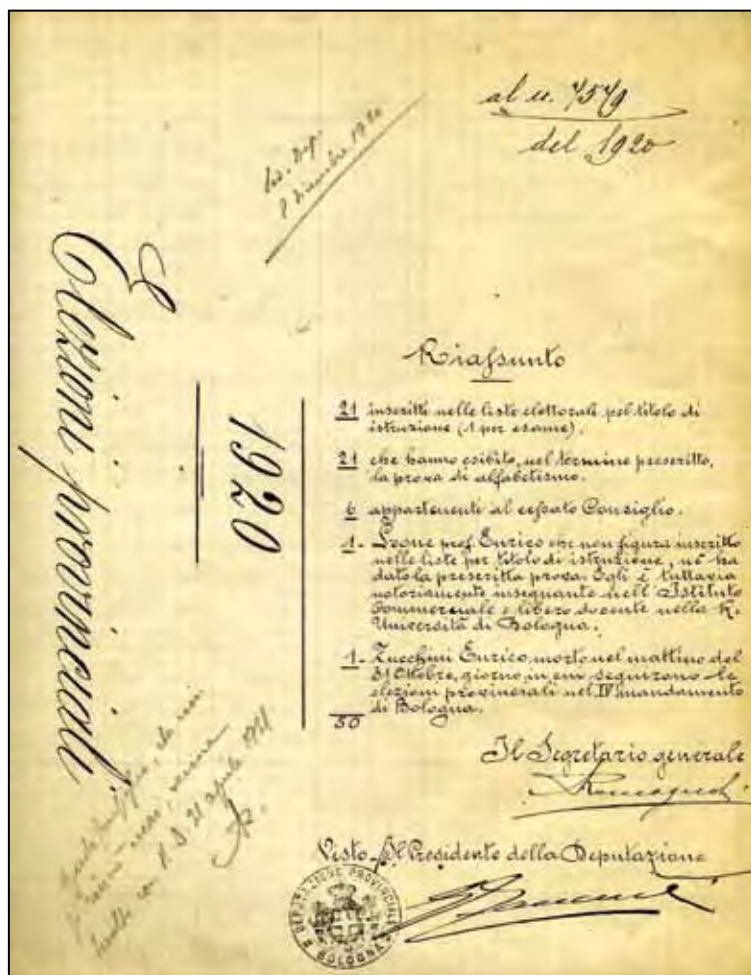 al n. 7579
del 1920
Sed. Dep.
7 dicembre 1920
Elezioni provinciali
1920
Riassunto
21 inscritti nelle liste elettorali pel titolo di
istruzione (1 per esame).
21 che hanno esibito, nel termine prescritto,
la prova di alfabetismo.
6 appartenenti al cessato Consiglio.
1 - Leone prof. Enrico che non figura inscritto
nelle liste per titolo di istruzione, nè ha
dato la prescritta prova. Egli è tuttavia
notoriamente insegnante nell'Istituto
Commerciale e libero docente nella R.
Università di Bologna.
1 - Zucchini Enrico morto nel mattino del
31 Ottobre, giorno in cui seguirono le
elezioni provinciali nel IV mandamento
di Bologna.
50
Il Segretario generale
Romagnoli
Visto - Il Presidente della Deputazione
DEPUTAZIONE PROVINCIALE
BOLOGNA
21 aprile